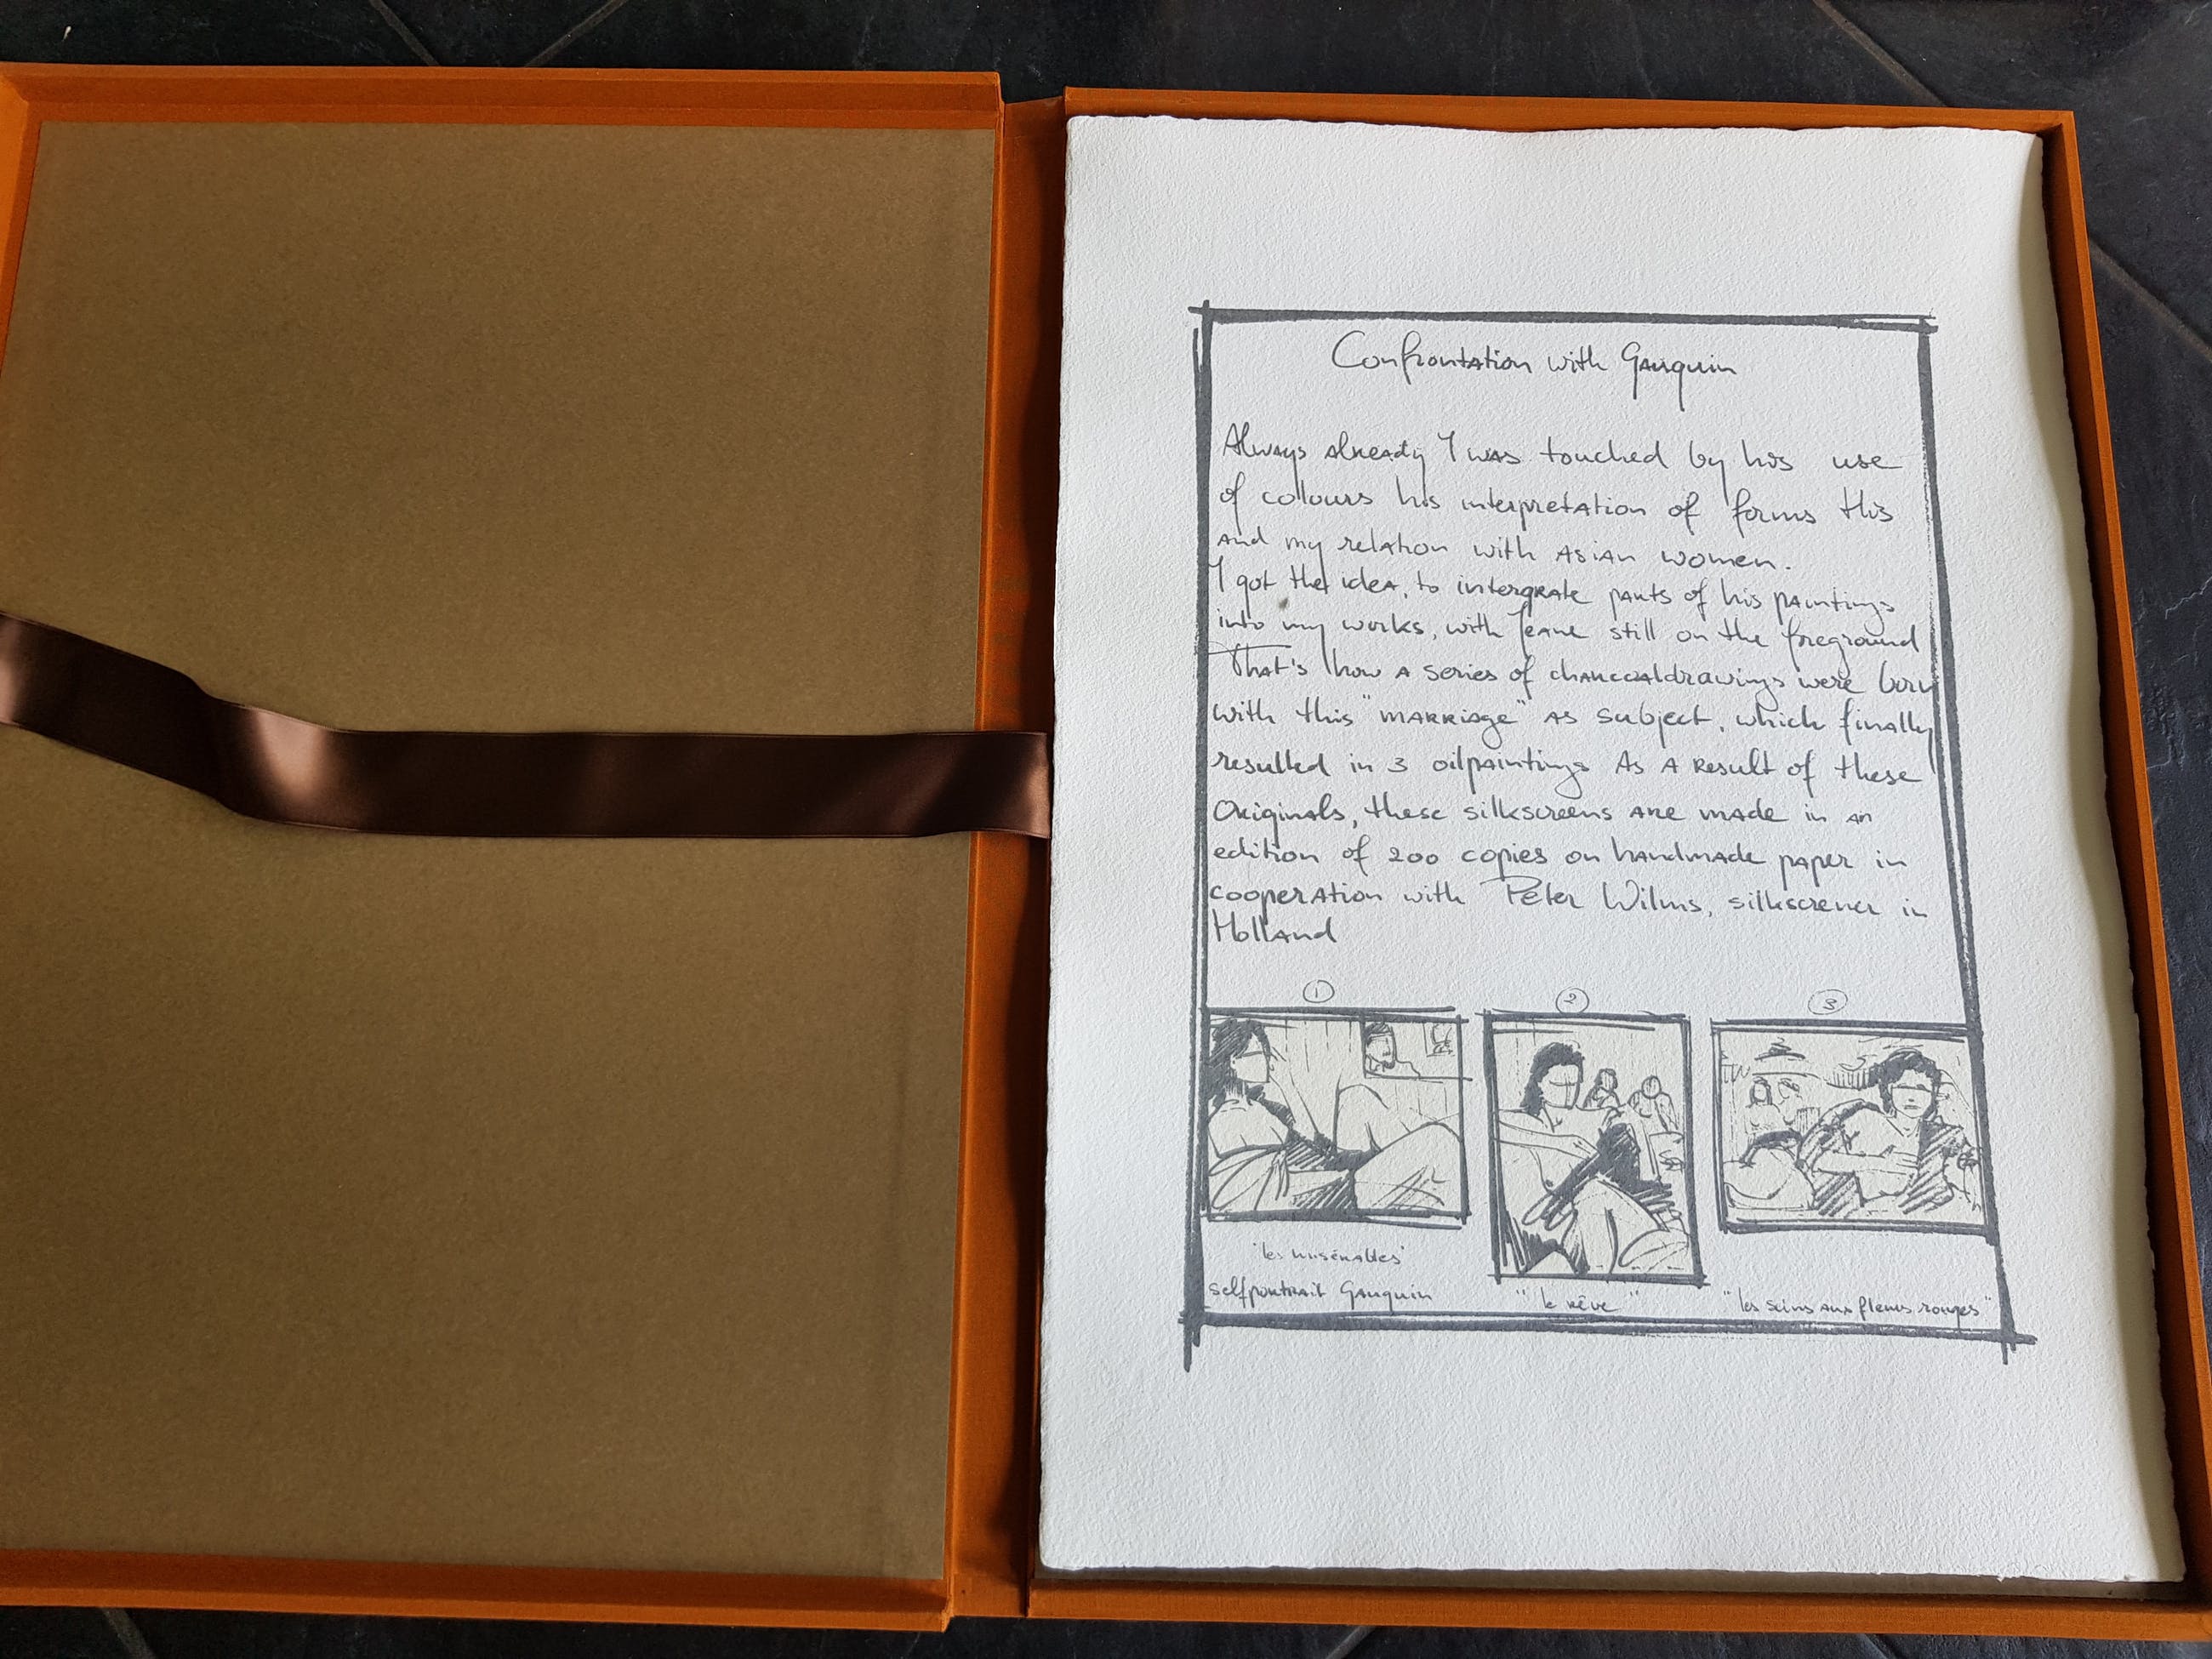 Confrontation with Gauguin
Always already I was touched by his use
of collours his interpretation of forms this
and my relation with asian women.
I got the idea, to intergrate parts of his paintings
into my works, with Jeane still on the foreground
That's how a series of charcoaldrawings were born
with this "marriage" as subject, which finally
resulted in 3 oilpaintings As a result of these
Originals, these silkscreens are made in an
edition of 200 copies on handmade paper in
cooperation with Peter Wilms, silkscrener in
Holland
1 2 3
'les misérables'
selfportrait Gauguin
"le rêve"
"les seins aux fleurs rouges"